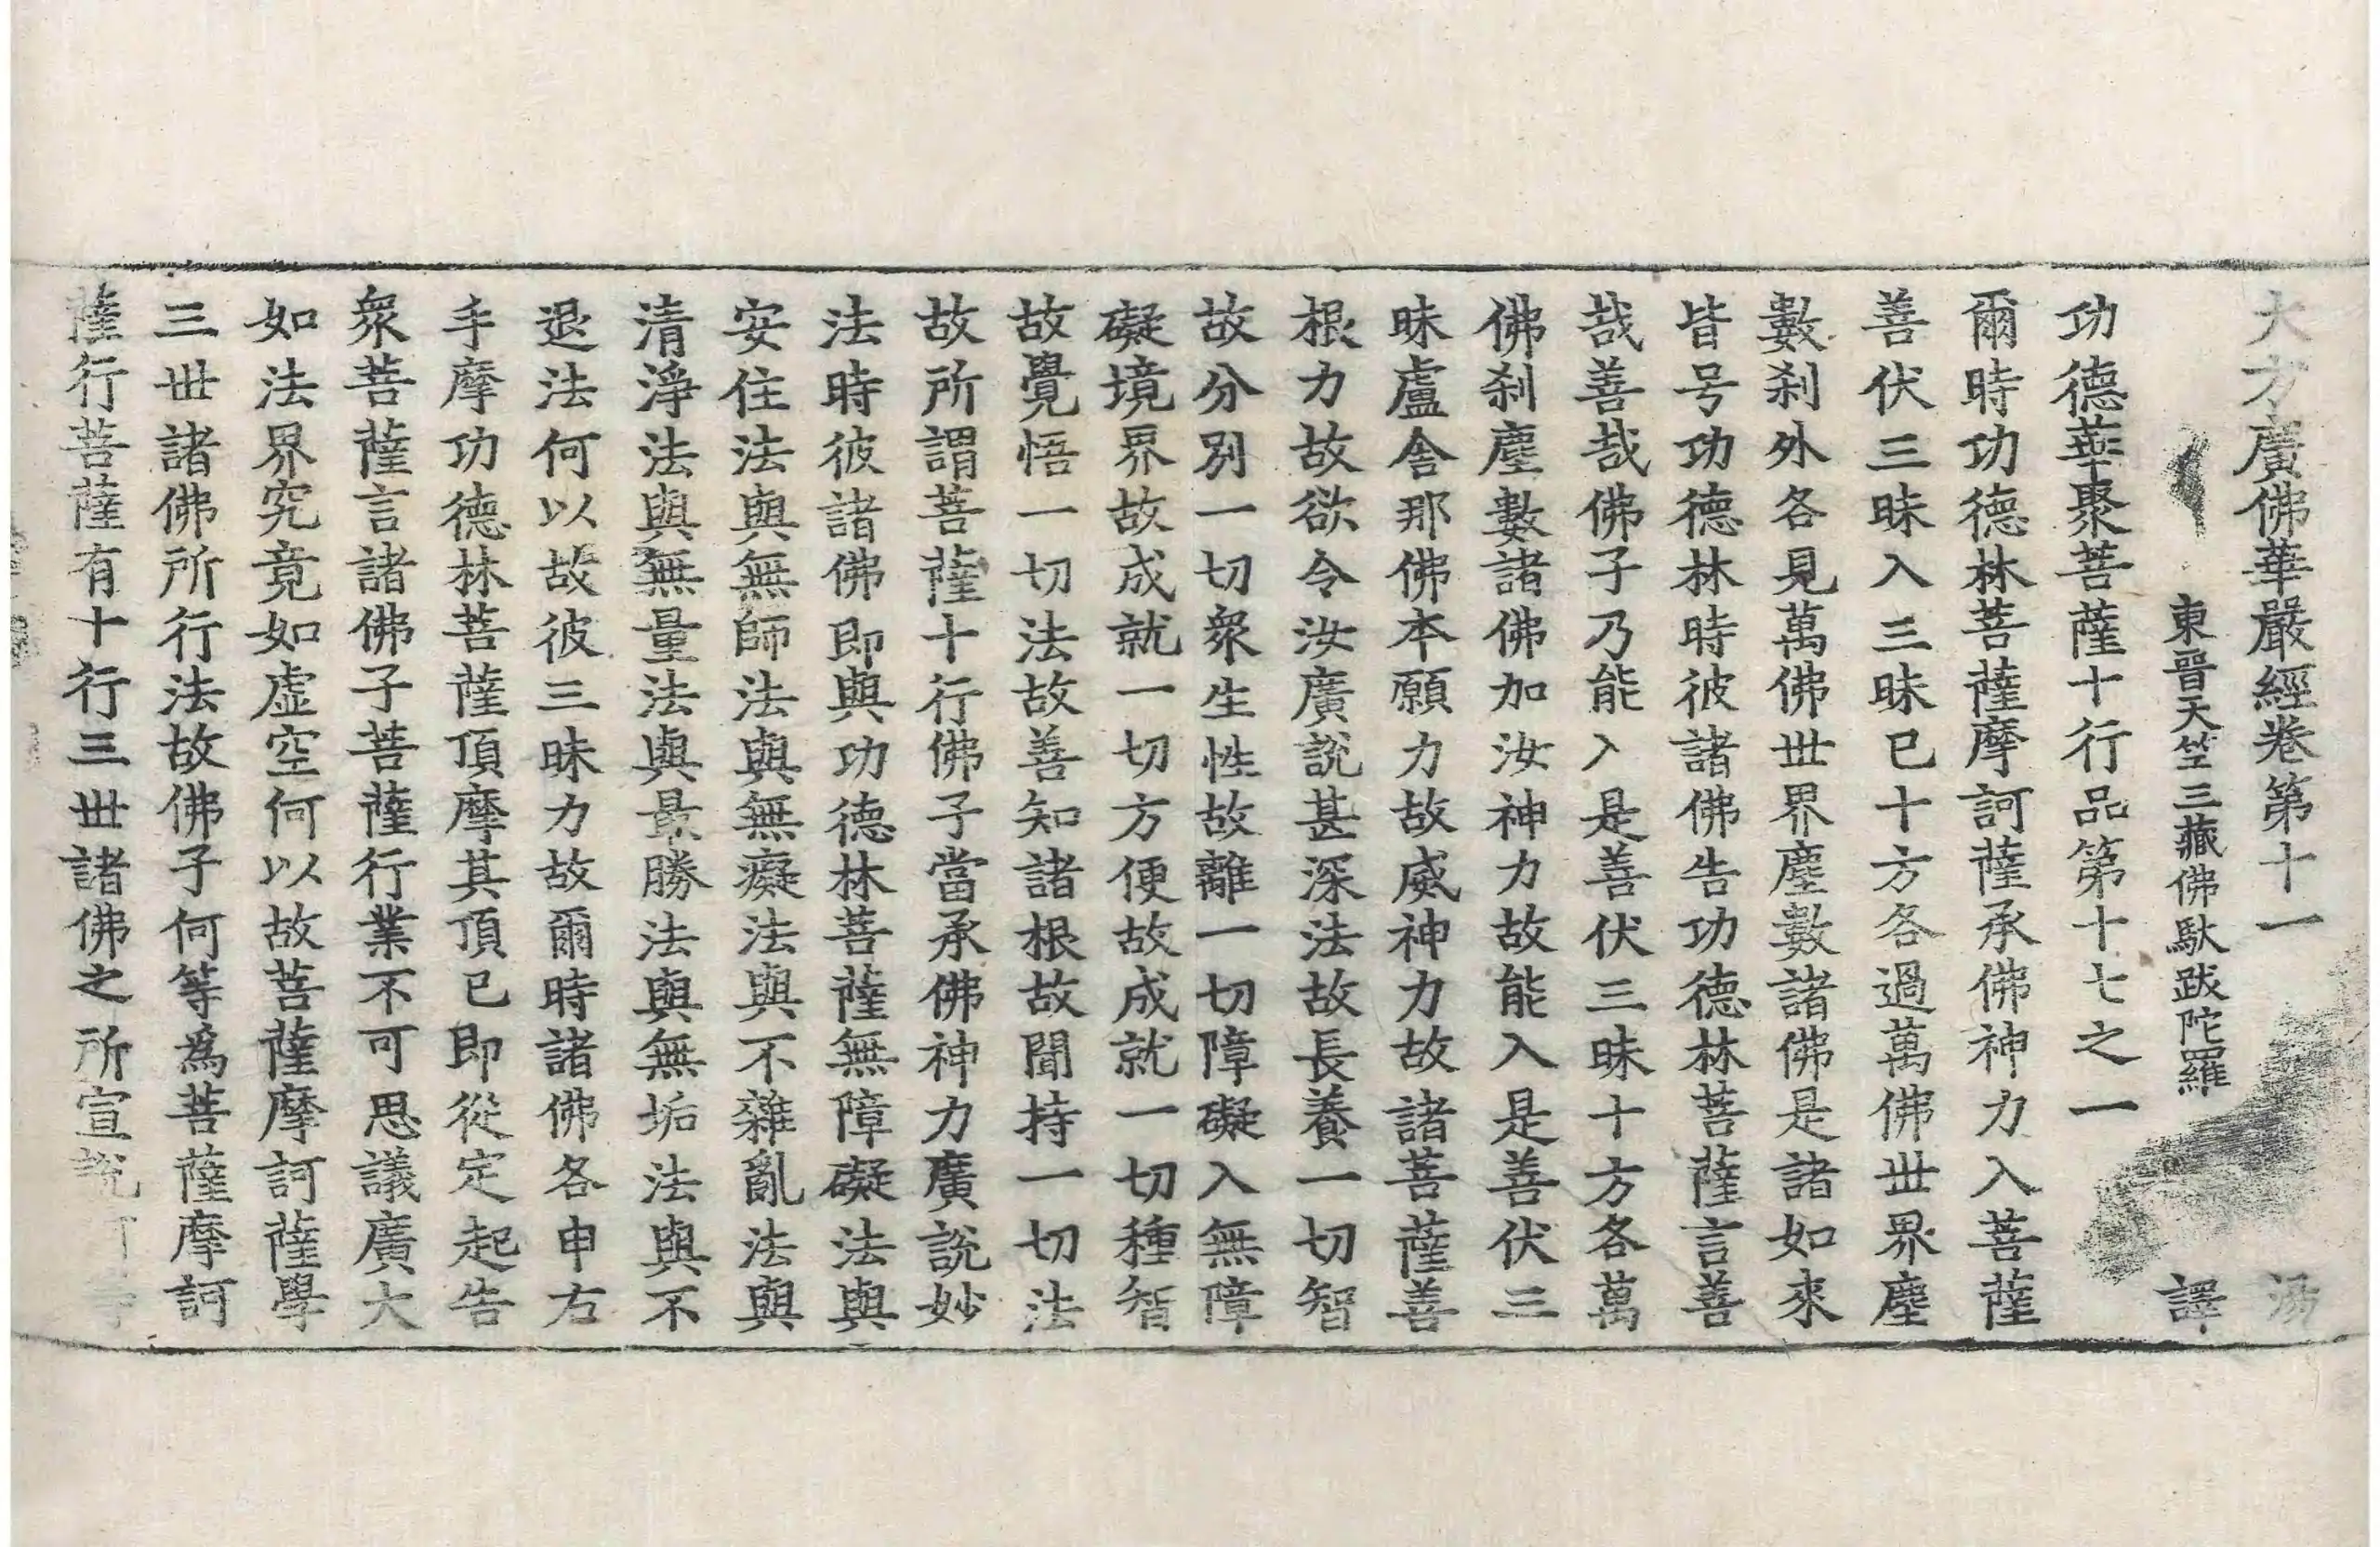 大方廣佛華嚴經卷第十一 湯
東晉天竺三藏佛馱跋陀羅 譯
功德華聚菩薩十行品第十七之一
爾時功德林菩薩摩訶薩承佛神力入菩薩
善伏三昧入三昧已十方各過萬佛世界塵
數刹外各見萬佛世界塵數諸佛是諸如來
皆号功德林時彼諸佛告功德林菩薩言善
哉善哉佛子乃能入是善伏三昧十方各萬
佛刹塵數諸佛加汝神力故能入是善伏三
昧盧舍那佛本願力故威神力故諸菩薩善
根力故欲令汝廣說甚深法故長養一切智
故分別一切衆生性故離一切障礙入無障
礙境界故成就一切方便故成就一切種智
故覺悟一切法故善知諸根故聞持一切法
故所謂菩薩十行佛子當承佛神力廣說妙
法時彼諸佛即與功德林菩薩無障礙法與
安住法與無師法與無癡法與不雜亂法與
清淨法與無量法與最勝法與無垢法與不
退法何以故彼三昧力故爾時諸佛各申右
手摩功德林菩薩頂摩其頂已即從定起告
衆菩薩言諸佛子菩薩行業不可思議廣大
如法界究竟如虛空何以故菩薩摩訶薩學
三世諸佛所行法故佛子何等爲菩薩摩訶
薩行菩薩有十行三世諸佛之所宣說何等